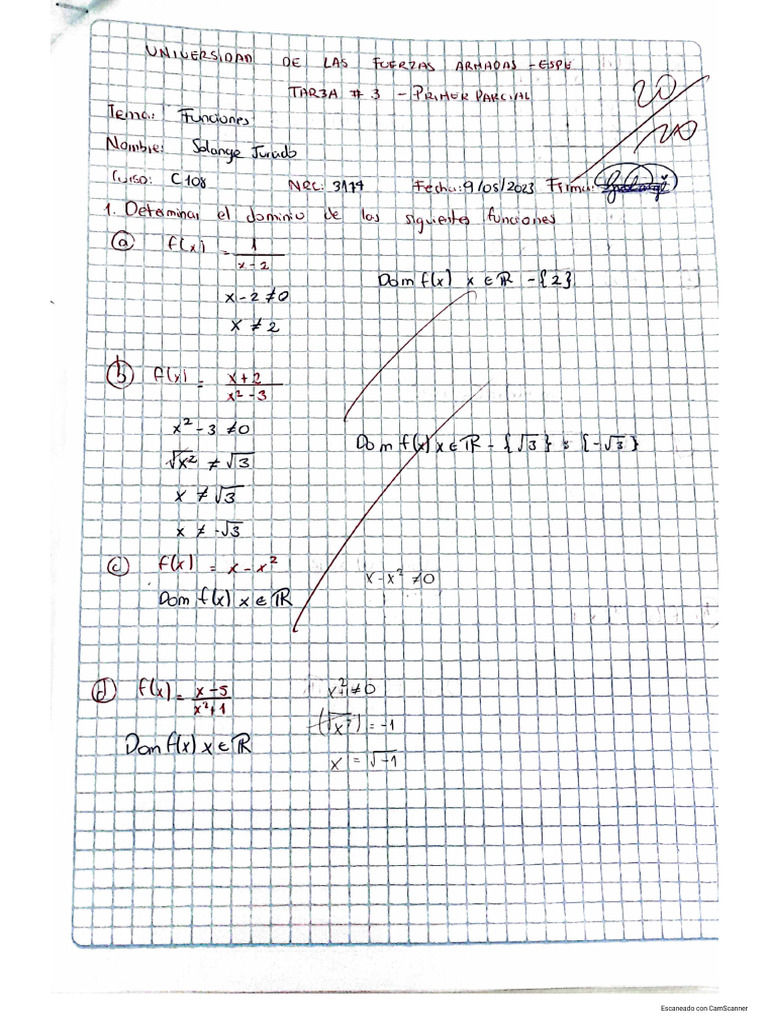 UNIVERSIDAD DE LAS FUERZAS ARMADAS - ESPE
TAR3A # 3 - PRIMER PARCIAL
20/20
Tema: Funciones
Nombre: Solange Jurado
Curso: C108 NRC: 3177 Fecha: 9/05/2023 Firma:
1. Determinar el dominio de las siguientes funciones
a) f(x) = 1/(x-2)
Dom f(x) x ∈ ℝ - {2}
x - 2 ≠ 0
x ≠ 2
b) f(x) = (x+2)/(x²-3)
x² - 3 ≠ 0
Dom f(x) x ∈ ℝ - {√3} ; {-√3}
√x² ≠ √3
x ≠ √3
x ≠ -√3
c) f(x) = x - x²
x - x² ≠ 0
Dom f(x) x ∈ ℝ
d) f(x) = (x-5)/(x²+1)
x²+1 ≠ 0
(√x²) = -1
Dom f(x) x ∈ ℝ
x = √-1
Escaneado con CamScanner